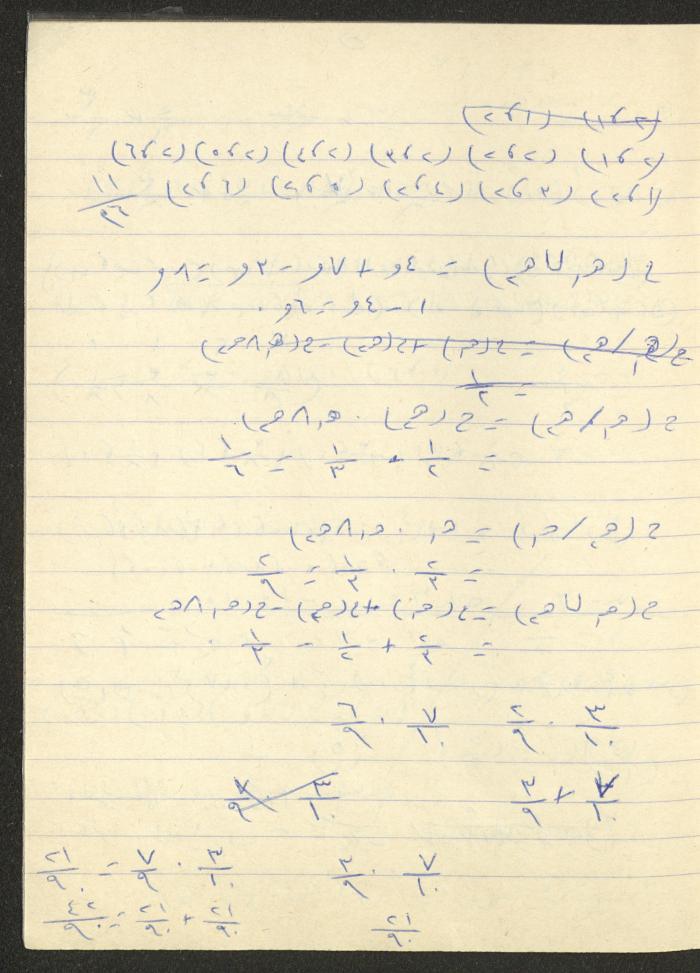 (٢،١) (١،٢)
(١،٢) (٢،٢) (٣،٢) (٤،٢) (٥،٢) (٦،٢)
(٢،١) (٢،٣) (٢،٤) (٢،٥) (٢،٦) ١١/٣٦
ح (ح١ U ح٢) = ٤و + ٧و - ٣و = ٨و
١ - ٤و = ٦و .
ح (ح١/ح٢) = ح(ح١) + ح(ح٢) - ح(ح١ ∧ ح٢)
= ١/٢
ح (ح١/ح٢) = ح (ح٢) . ح١ ∧ ح٢)
= ١/٢ . ١/٣ = ١/٦
ح (ح٢/ح١) = ح١ . ح١ ∧ ح٢)
= ٢/٣ . ١/٣ = ٢/٩
ح (ح١ U ح٢) = ح(ح١) + ح(ح٢) - ح(ح١ ∧ ح٢
= ٢/٣ + ١/٢ - ١/٣ .
٣/١٠ . ٢/٩   ٧/١٠ . ٦/٩
٧/١٠ + ٣/٩   ٣/١٠ . ٧/٩
٧/١٠ . ٣/٩   ٣/١٠ . ٧/٩ = ٢١/٩٠
٢١/٩٠   ٢١/٩٠ + ٢١/٩٠ = ٤٢/٩٠